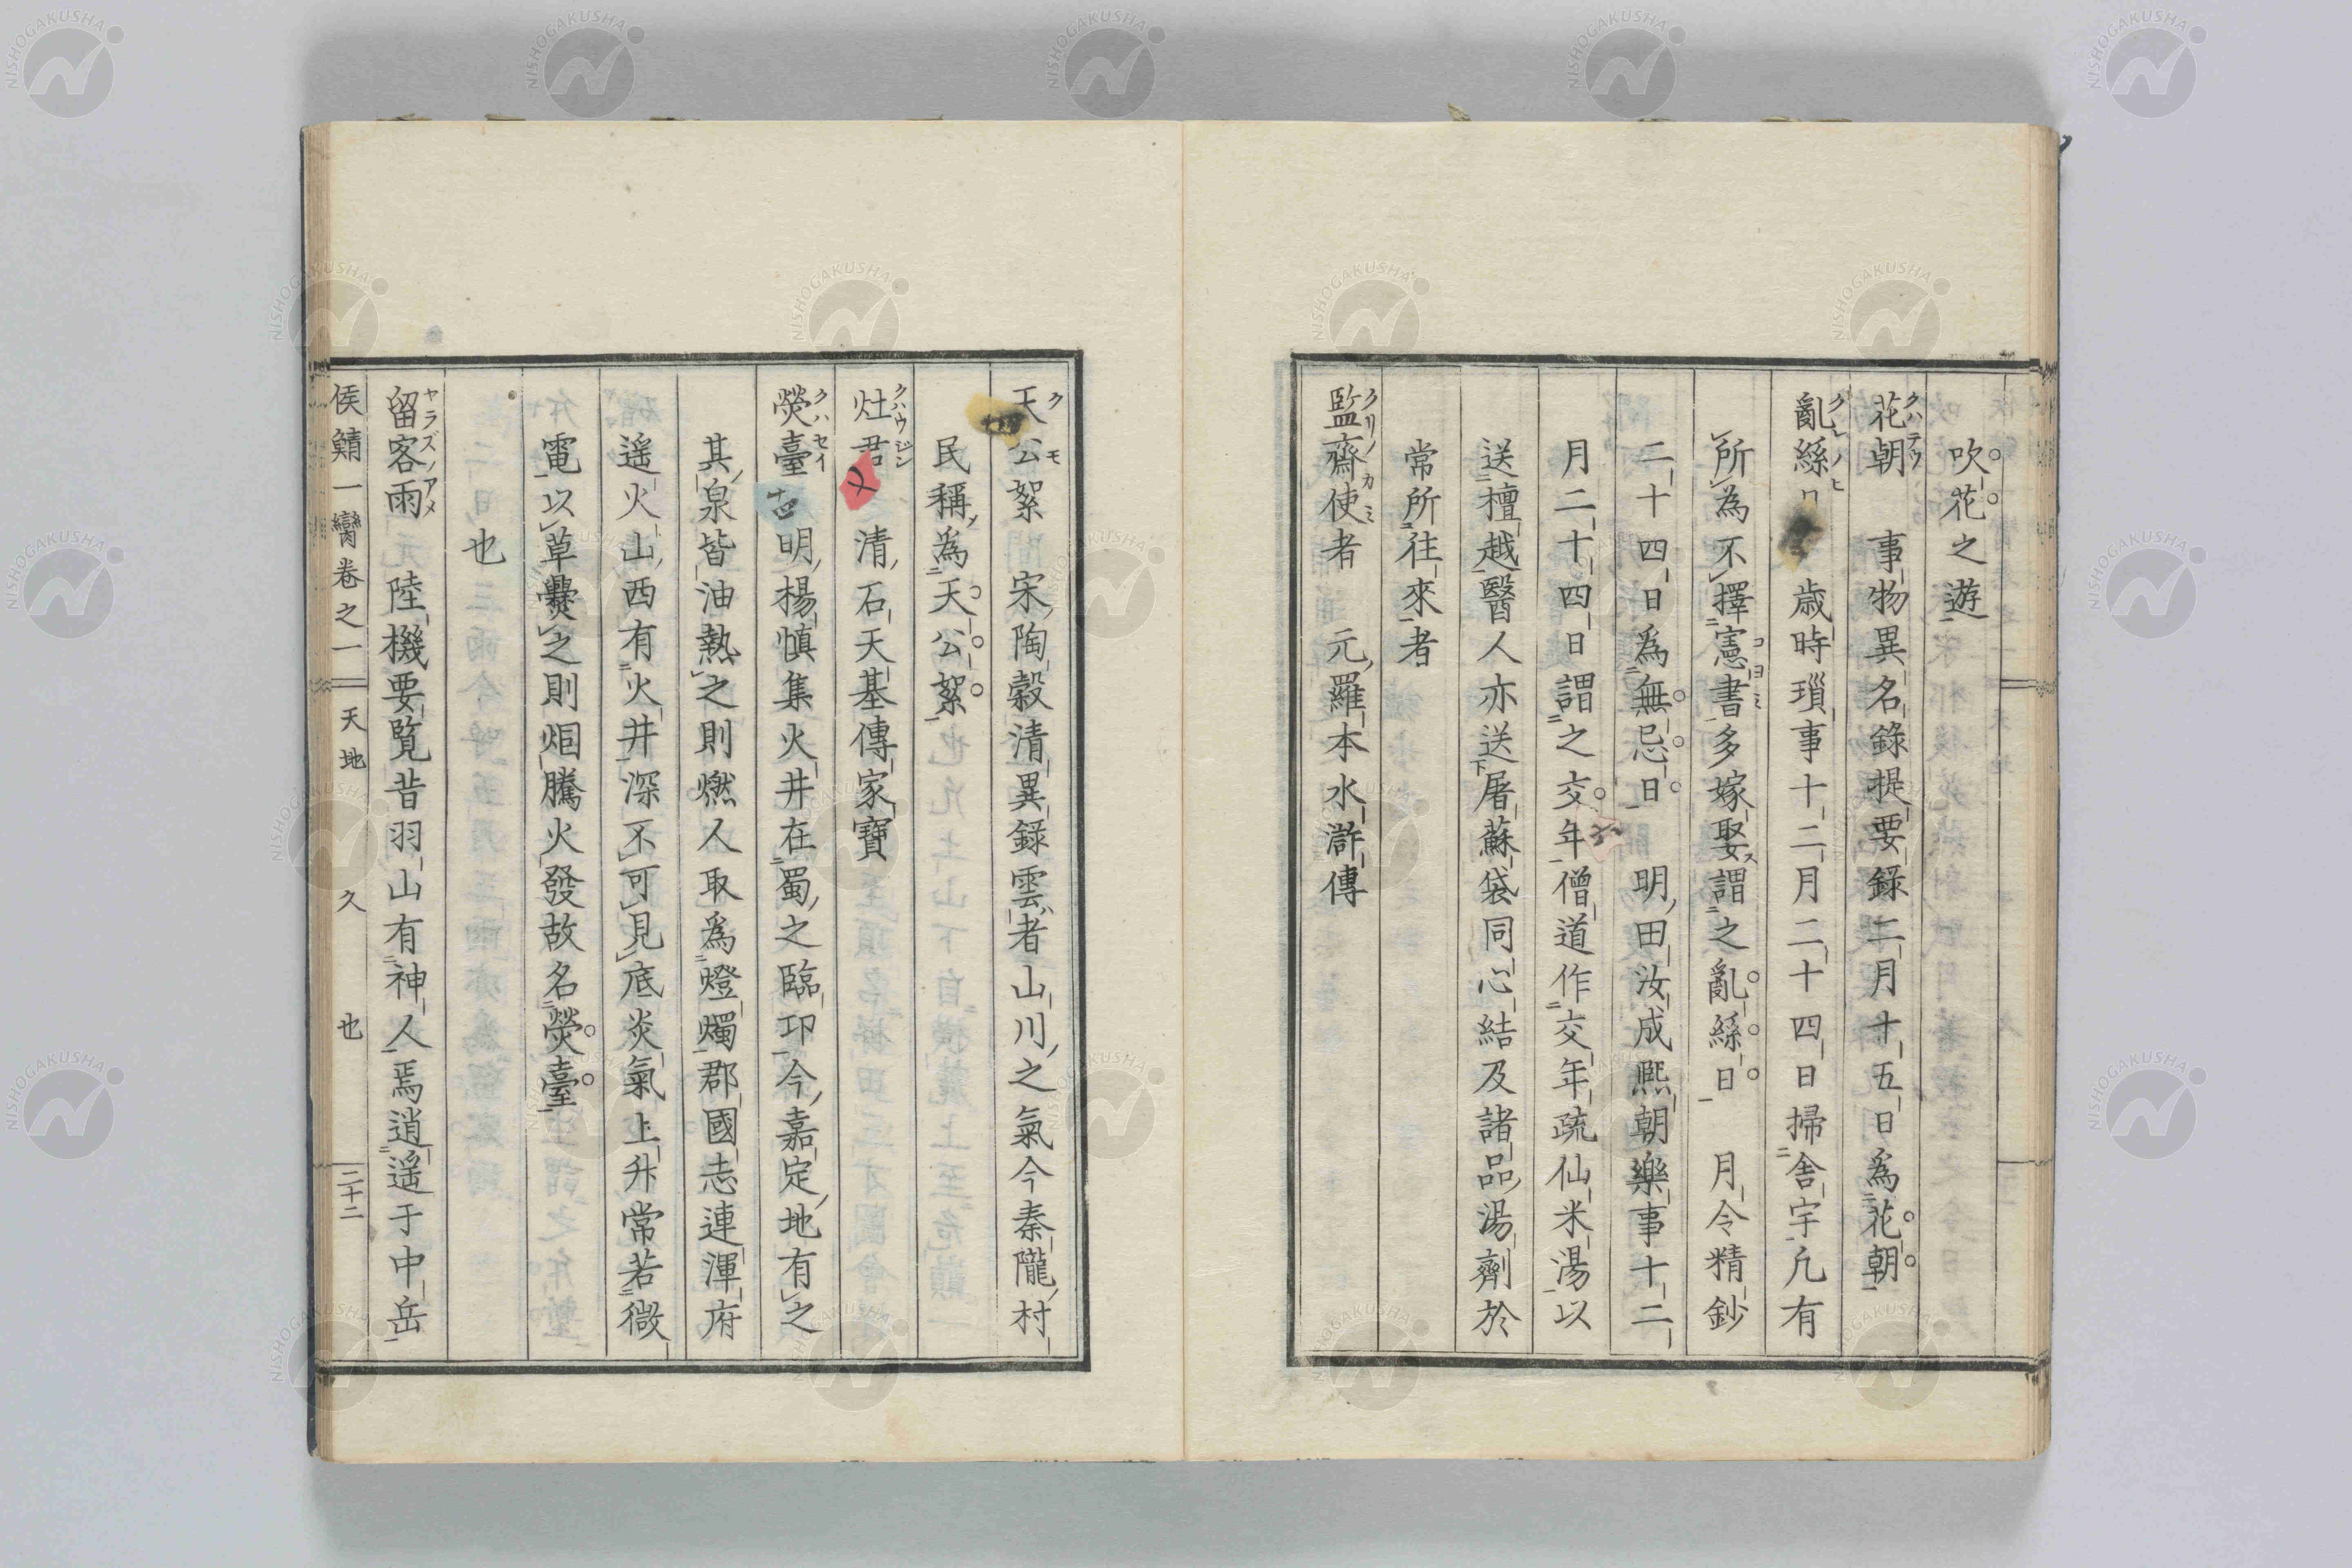 吹花之遊
花朝 事物異名錄提要錄二月十五日爲花朝
クハテウ
亂絲日 歳時瑣事十二月二十四日掃舎宇凢有
クレノヒ
所為不擇憲書多嫁娶謂之亂絲日 月令精鈔
コヨミ
二十四日爲無忌日 明田汝成熈朝樂事十二
月二十四日謂之交年僧道作交年疏仙米湯以
送檀越醫人亦送屠蘇袋同心結及諸品湯劑於
常所往來者
監齋使者 元羅本水滸傳
クリノカミ
天公絮 宋陶穀清異録雲者山川之氣今秦隴村
クモ
民稱爲天公絮
灶君 清石天基傳家寶
クハウジン
熒臺 明楊慎集火井在蜀之臨邛今嘉定地有之
クハセイ
其泉皆油熱之則燃人取爲燈燭郡國志連渾府
遥火山西有火井深不可見底炎氣上升常若微
電以草爨之則烟騰火發故名熒臺
也
留客雨 陸機要覧昔羽山有神人焉逍遥于中岳
ヤラズノアメ
侯鯖一臠卷之一 天地 久 也 二十二
NISHOGAKUSHA